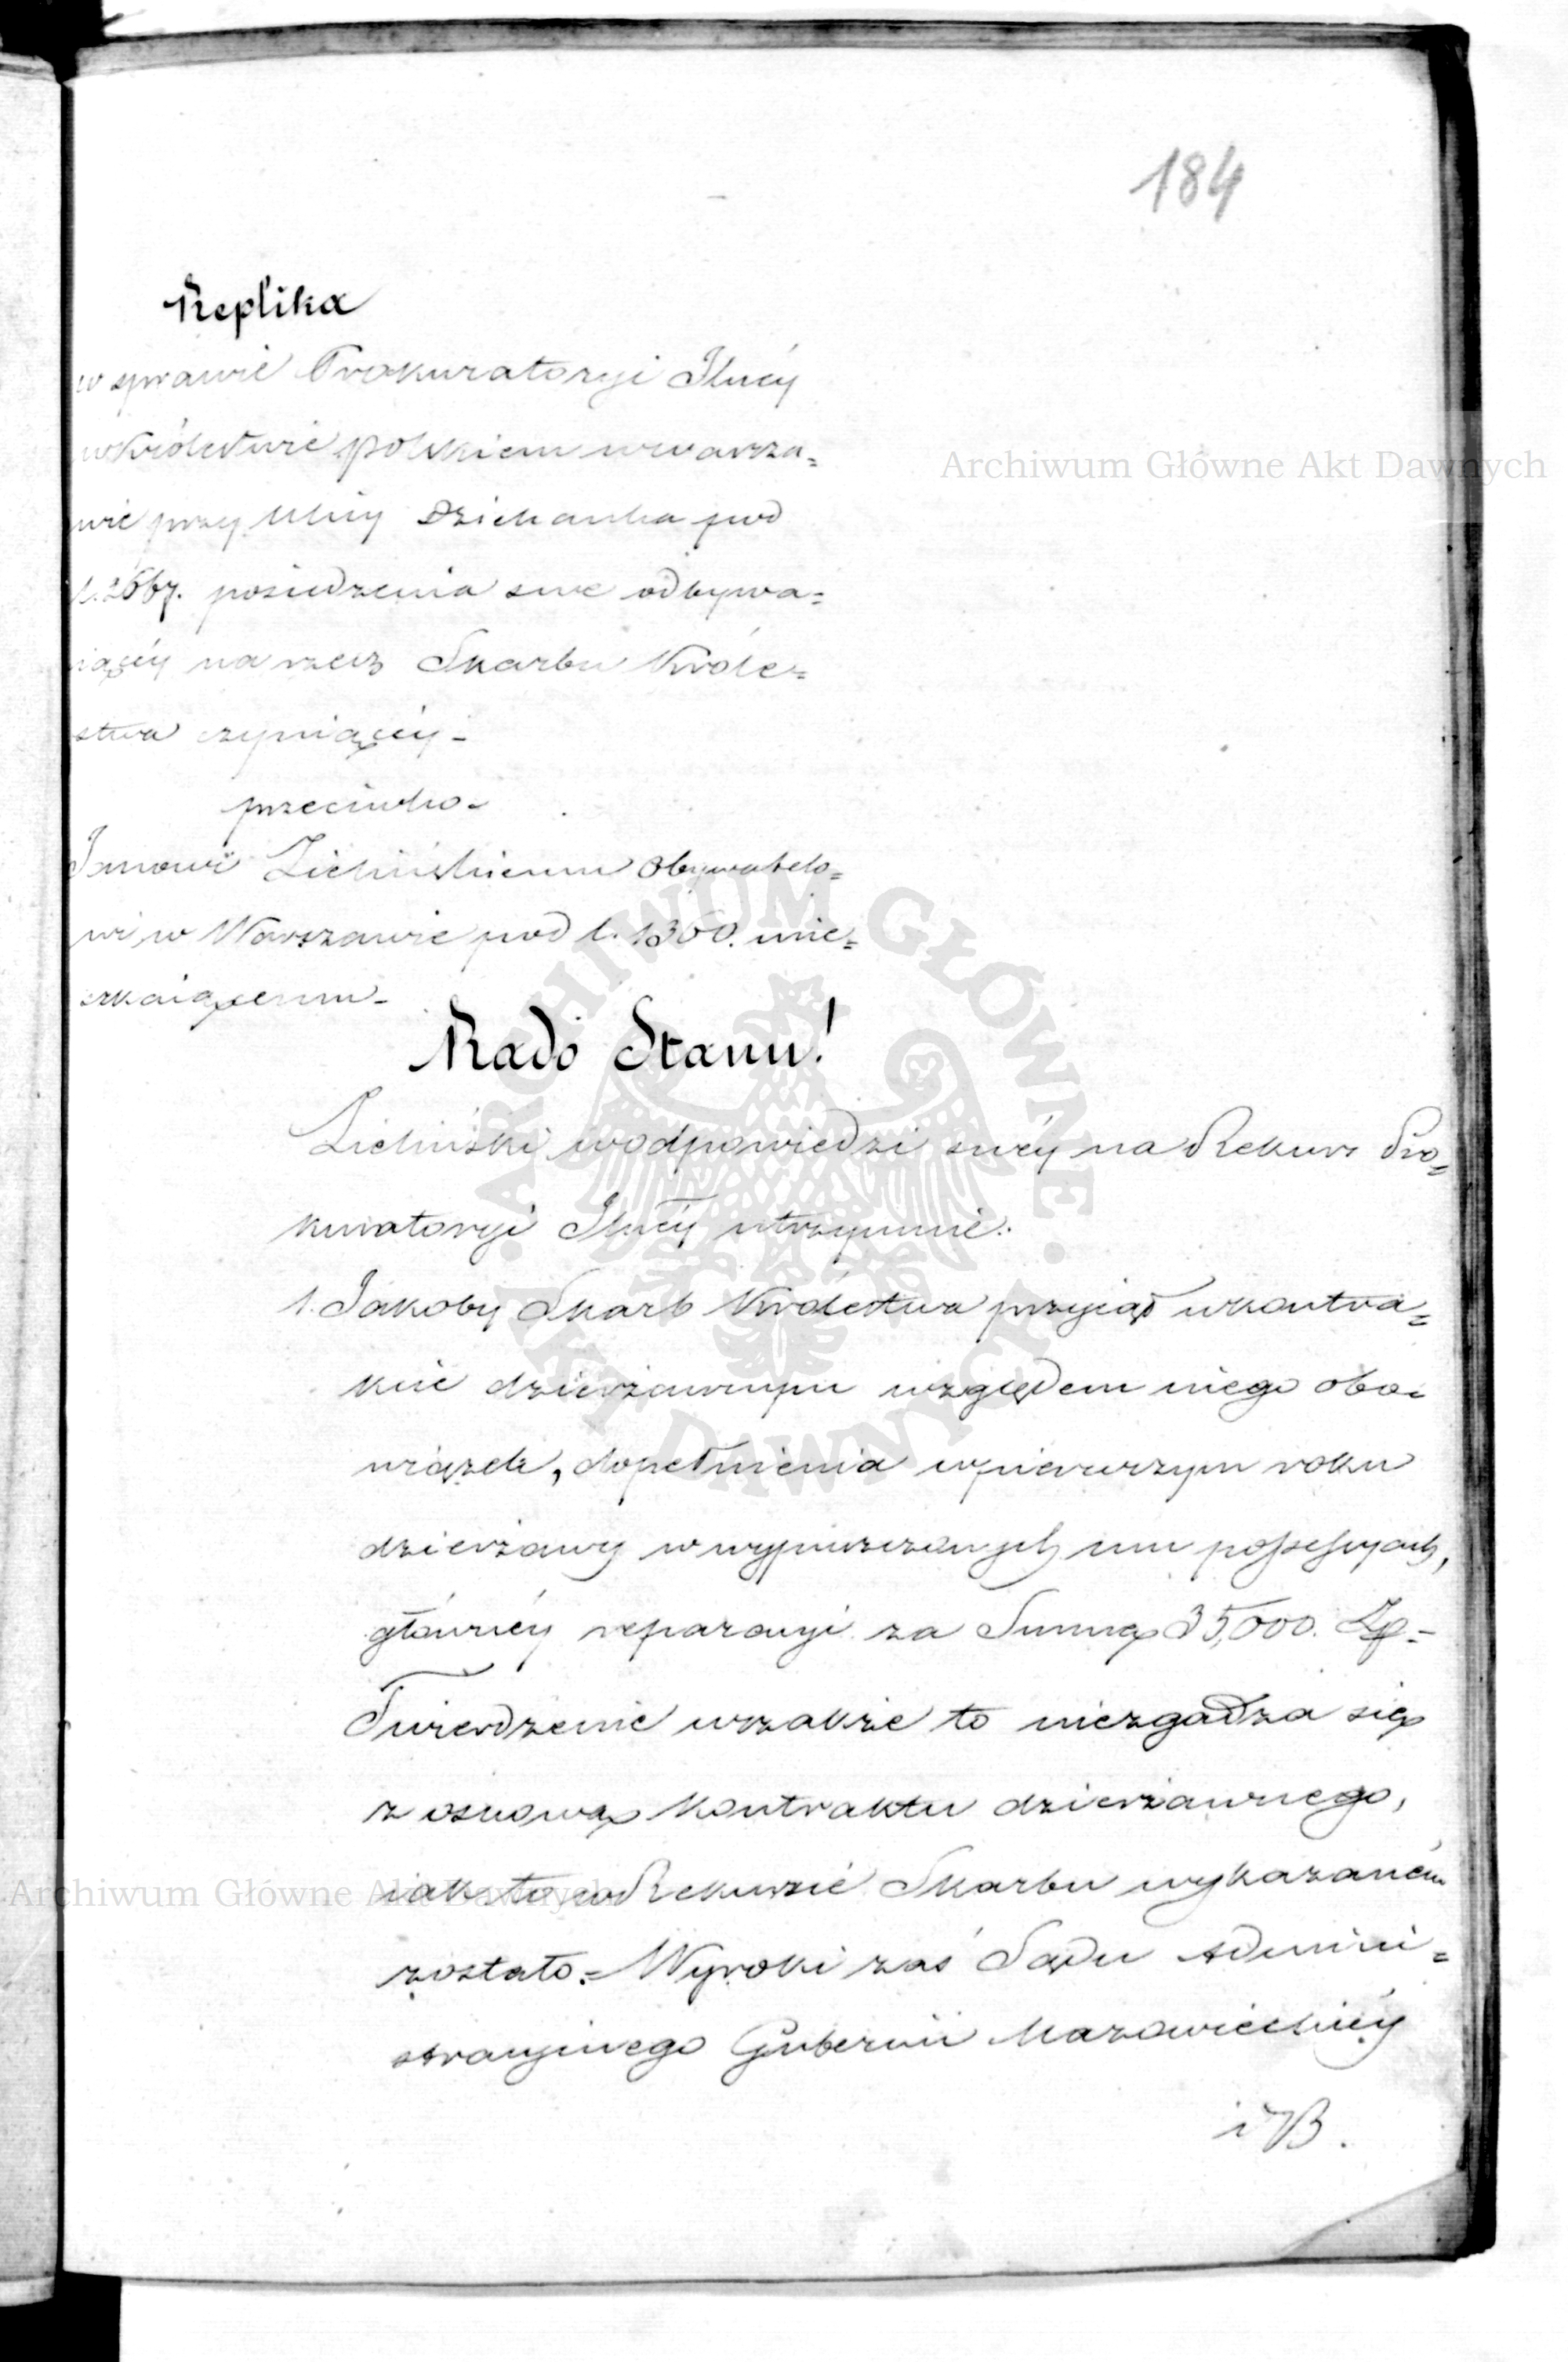 184
Replika
w sprawie Prokuratoryi Jlnéy
w Królestwie polskiem w warsza=
wie przy Ulicy Dziekanka pod
l. 2667. posiedzenia swe odbywa=
iącéy na rzecz Skarbu Króle=
stwa czyniącéy -
przeciwko -
Janowi Zielińskiemu Obywatelo=
wi w Warszawie pod l. 1360. mie=
szkaiącemu -
Rado Stanu!
Zieliński w odpowiedzi swéy na Rekurs Pro=
kuratoryi Jlnéy utrzymuie:
1. Jakoby Skarb Królestwa przyiął w kontra=
kcie dzierżawnym względem niego obo=
wiązek, dopełnienia w pierwszym roku
dzierżawy w wypuszczonych mu possessyach,
główney reparacyi za Summę 35,000. Zp. -
Twierdzenie wszakże to niezgadza się
z osnową kontraktu dzierżawnego,
iak to w Rekursie Skarbu wykazaném
zostało. = Wyroki zaś Sądu Admini=
stracyinego Gubernii Mazowieckiéy
i B.
Archiwum Główne Akt Dawnych
Archiwum Główne Akt Dawnych
ARCHIWUM GŁÓWNE · AKT DAWNYCH ·